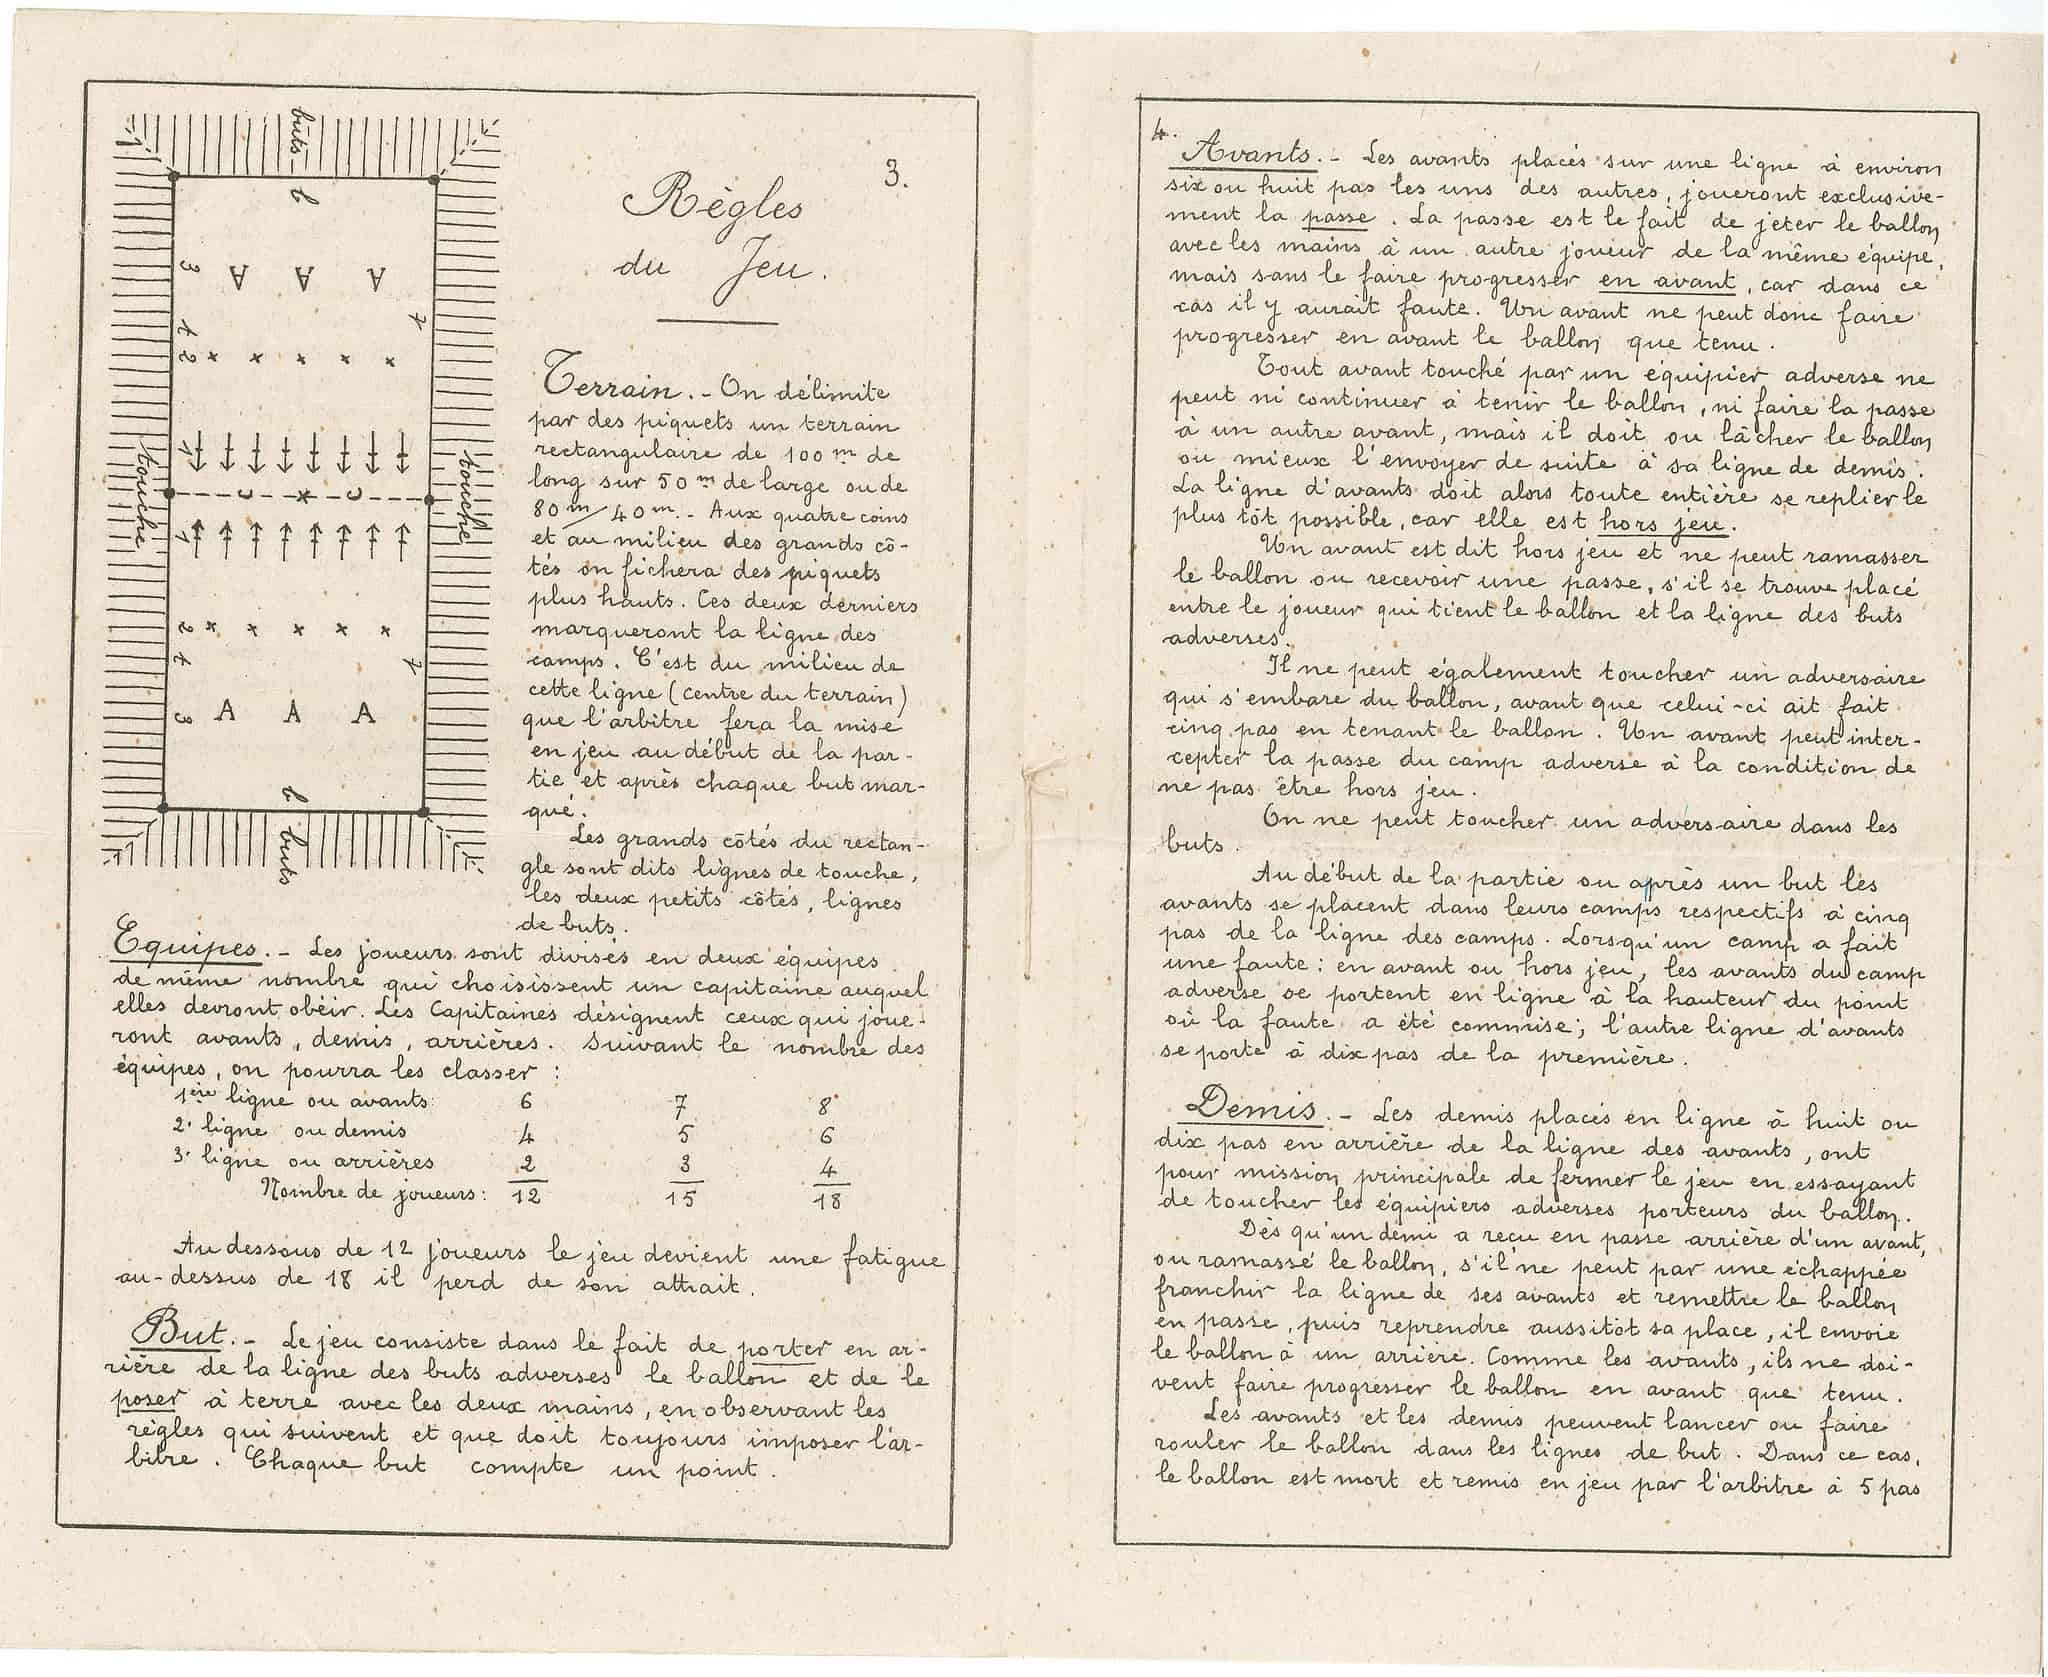 3.
Règles
du Jeu.
buts
b
3 A A A
t t
2 x x x x x
1
touche touche
1
2 x x x x x
t t
3 A A A
b
buts
Terrain. - On délimite
par des piquets un terrain
rectangulaire de 100 m de
long sur 50 m de large ou de
80 m/40 m. - Aux quatre coins
et au milieu des grands cô-
tés on fichera des piquets
plus hauts. Ces deux derniers
marqueront la ligne des
camps. C'est du milieu de
cette ligne (centre du terrain)
que l'arbitre fera la mise
en jeu au début de la par-
tie et après chaque but mar-
qué.
Les grands côtés du rectan-
gle sont dits lignes de touche,
les deux petits côtés, lignes
de buts.
Equipes. - Les joueurs sont divisés en deux équipes
de même nombre qui choisissent un capitaine auquel
elles devront obéir. Les Capitaines désignent ceux qui joue-
ront avants, demis, arrières. Suivant le nombre des
équipes, on pourra les classer :
1ère ligne ou avants 6 7 8
2. ligne ou demis 4 5 6
3. ligne ou arrières 2 3 4
Nombre de joueurs: 12 15 18
Au dessous de 12 joueurs le jeu devient une fatigue
au-dessus de 18 il perd de son attrait.
But. - Le jeu consiste dans le fait de porter en ar-
rière de la ligne des buts adverses le ballon et de le
poser à terre avec les deux mains, en observant les
règles qui suivent et que doit toujours imposer l'ar-
bitre. Chaque but compte un point.
4.
Avants. - Les avants placés sur une ligne à environ
six ou huit pas les uns des autres, joueront exclusive-
ment la passe. La passe est le fait de jeter le ballon
avec les mains à un autre joueur de la même équipe,
mais sans le faire progresser en avant, car dans ce
cas il y aurait faute. Un avant ne peut donc faire
progresser en avant le ballon que tenu.
Tout avant touché par un équipier adverse ne
peut ni continuer à tenir le ballon, ni faire la passe
à un autre avant, mais il doit ou lâcher le ballon
ou mieux l'envoyer de suite à sa ligne de demis.
La ligne d'avants doit alors toute entière se replier le
plus tôt possible, car elle est hors jeu.
Un avant est dit hors jeu et ne peut ramasser
le ballon ou recevoir une passe, s'il se trouve placé
entre le joueur qui tient le ballon et la ligne des buts
adverses.
Il ne peut également toucher un adversaire
qui s'embare du ballon, avant que celui-ci ait fait
cinq pas en tenant le ballon. Un avant peut inter-
cepter la passe du camp adverse à la condition de
ne pas être hors jeu.
On ne peut toucher un adversaire dans les
buts.
Au début de la partie ou après un but les
avants se placent dans leurs camps respectifs à cinq
pas de la ligne des camps. Lorsqu'un camp a fait
une faute: en avant ou hors jeu, les avants du camp
adverse se portent en ligne à la hauteur du point
où la faute a été commise; l'autre ligne d'avants
se porte à dix pas de la première.
Demis. - Les demis placés en ligne à huit ou
dix pas en arrière de la ligne des avants, ont
pour mission principale de fermer le jeu en essayant
de toucher les équipiers adverses porteurs du ballon.
Dès qu'un demi a reçu en passe arrière d'un avant,
ou ramassé le ballon, s'il ne peut par une échappée
franchir la ligne de ses avants et remettre le ballon
en passe, puis reprendre aussitôt sa place, il envoie
le ballon à un arrière. Comme les avants, ils ne doi-
vent faire progresser le ballon en avant que tenu.
Les avants et les demis peuvent lancer ou faire
rouler le ballon dans les lignes de but. Dans ce cas,
le ballon est mort et remis en jeu par l'arbitre à 5 pas